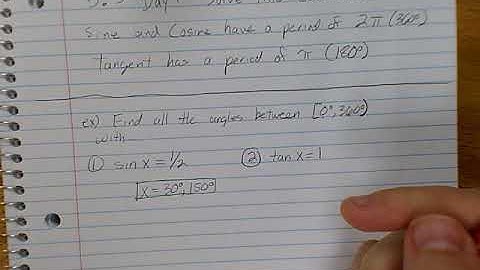 Day
Sine and Cosine have a period of 2π (360°)
tangent has a period of π (180°)
ex) Find all the angles between [0°, 360°)
with
① sin x = 1/2
② tan x = 1
x = 30°, 150°